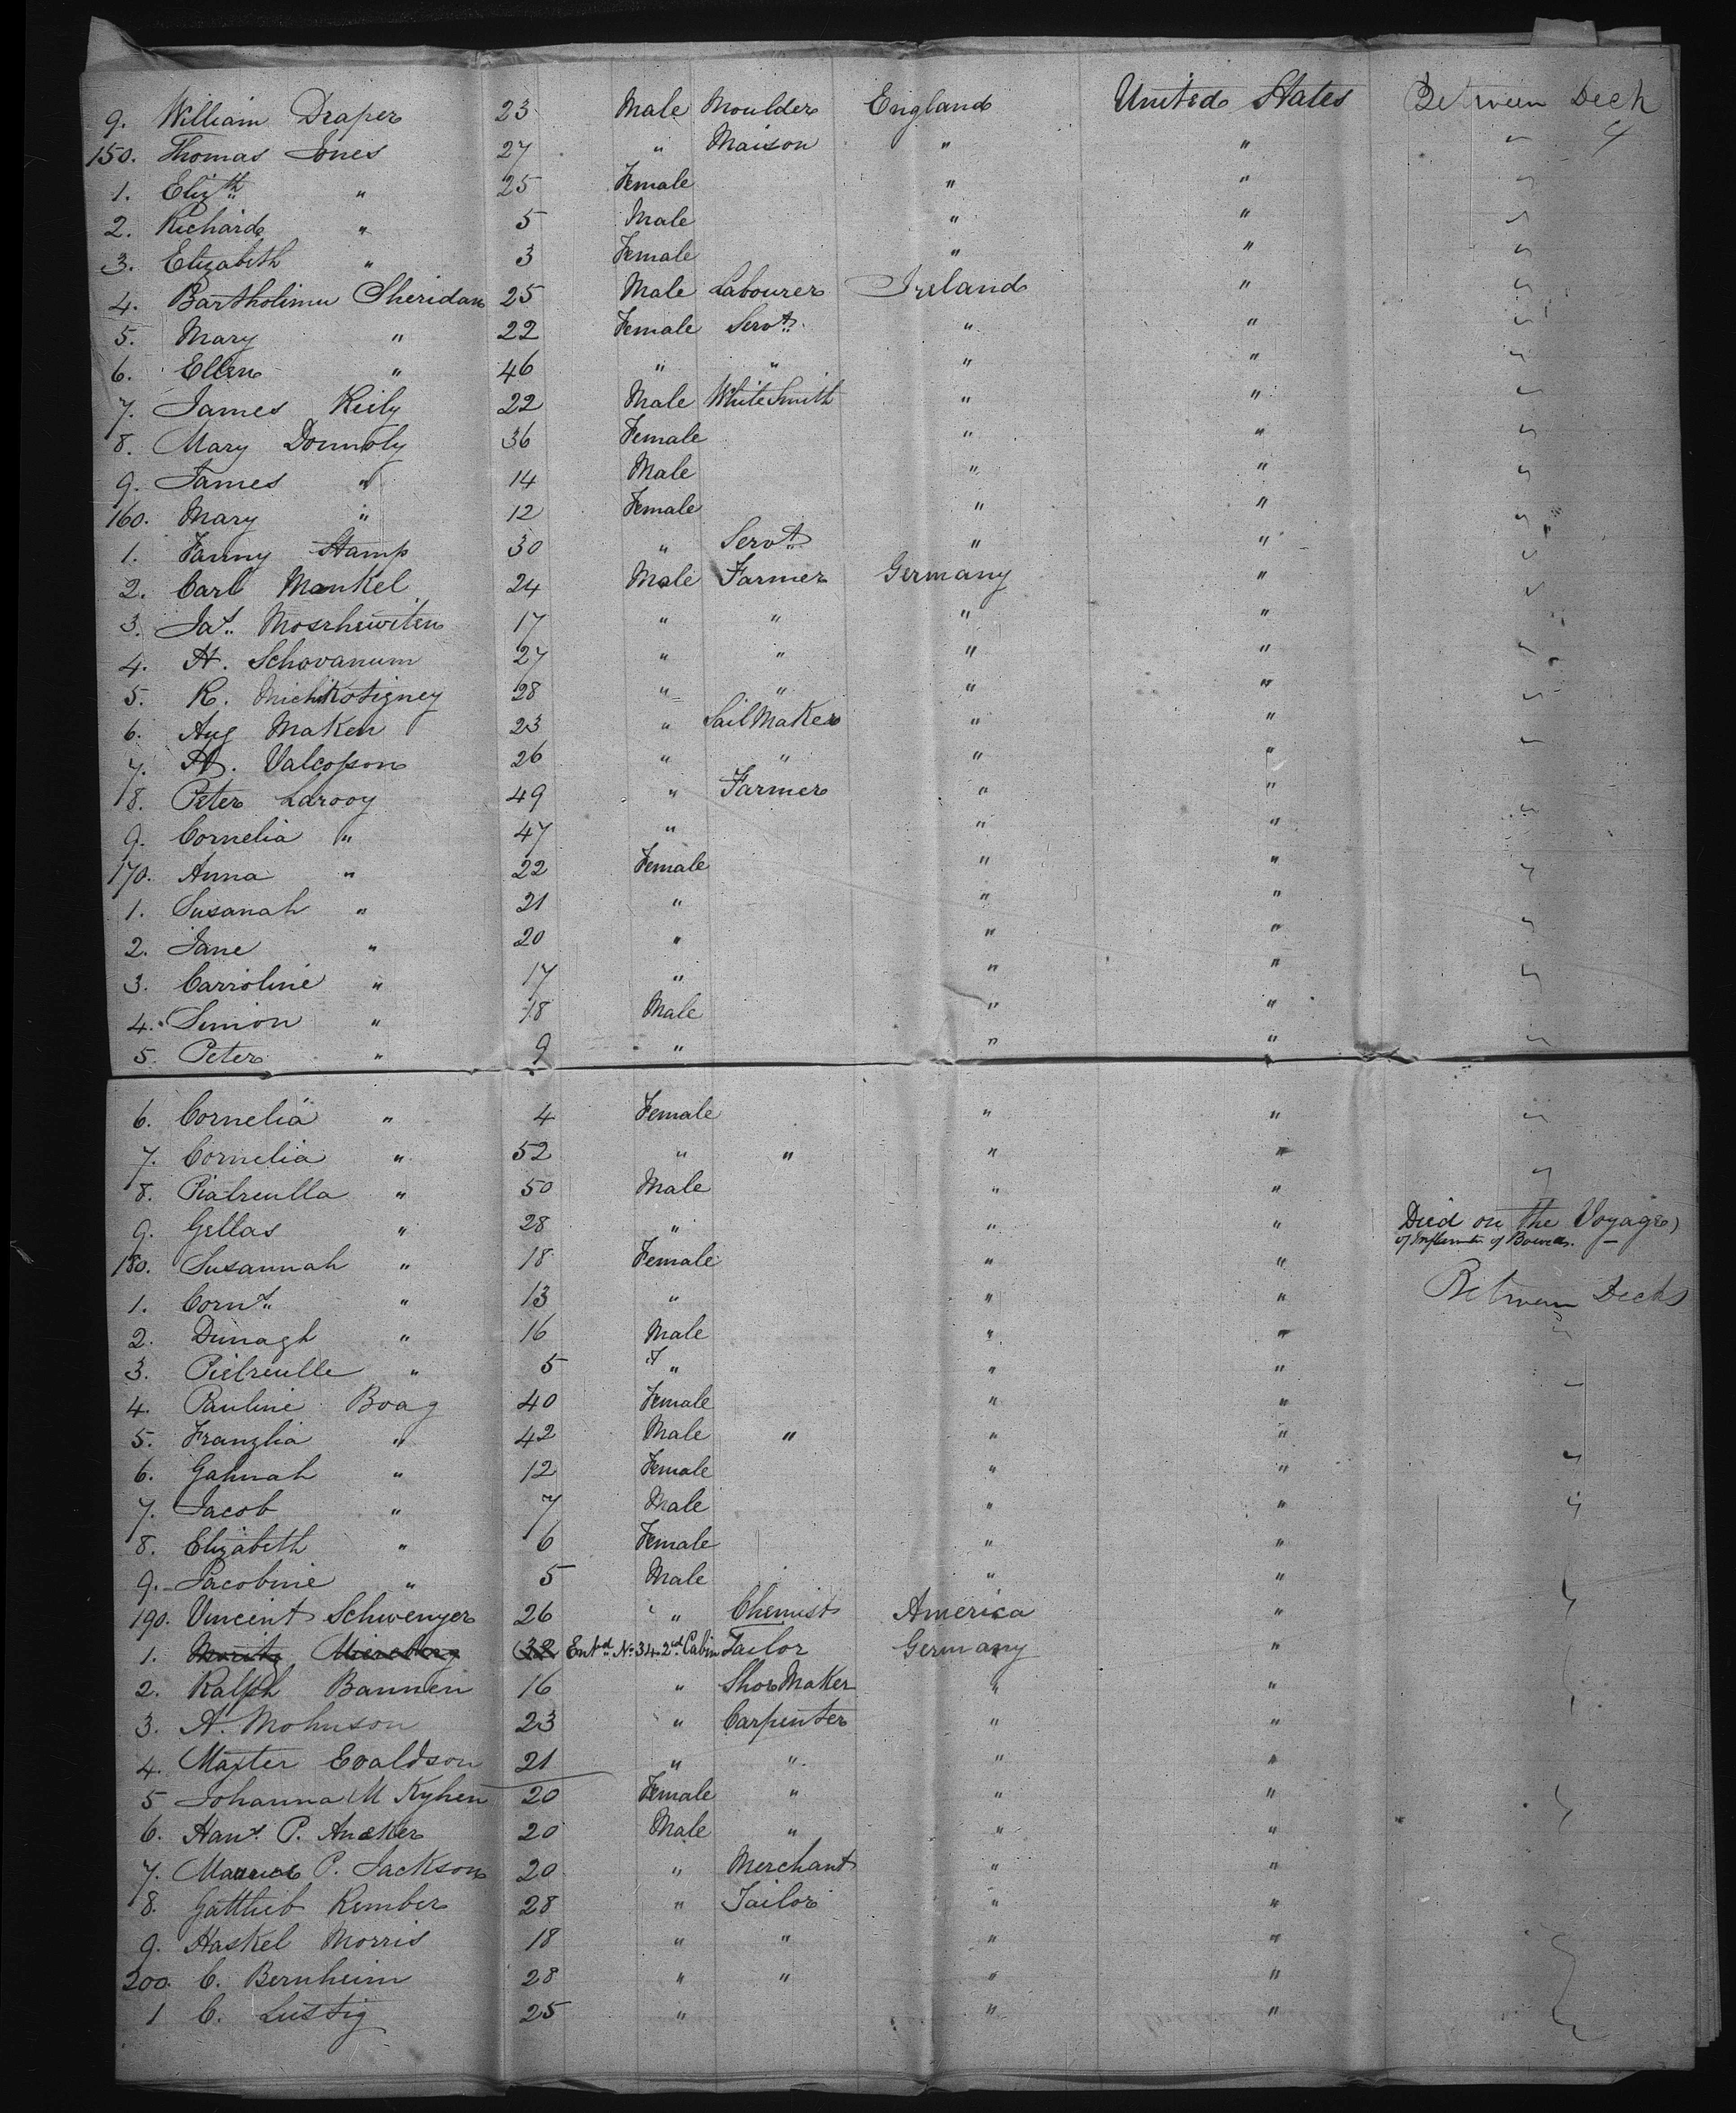 9. William Draper 23 Male Moulder England United States Between Deck
150. Thomas Jones 27 " Maison " " "
1. Elizth " 25 Female " " "
2. Richard " 5 Male " " "
3. Elizabeth " 3 Female " " "
4. Bartholimu Sheridan 25 Male Labourer Ireland " "
5. Mary " 22 Female Servt " " "
6. Ellen " 46 " " " " "
7. James Reily 22 Male WhiteSmith " " "
8. Mary Donnoly 36 Female " " "
9. James " 14 Male " " "
160. Mary " 12 Female " " "
1. Fanny Stamp 30 " Servt " " "
2. Carl Mankel 24 Male Farmer Germany " "
3. Jas. 17 " " " " "
4. H. Schovanum 27 " " " " "
5. R. 28 " " " " "
6. Aug Maken 23 " SailMaker " " "
7. 26 " " " " "
8. Peter Larooy 49 " Farmer " " "
9. Cornelia " 47 " " "
170. Anna " 22 Female " " "
1. Susanah " 21 " " "
2. Jane " 20 " " " "
3. Carroline " 17 " " " "
4. Simon " 18 Male " "
5. Peter " 9 " " " "
6. Cornelia " 4 Female " " "
7. Cornelia " 52 " " " "
8. Piatreulla " 50 Male " " "
9. Gellas " 28 " " " Died on the Voyage
of Inflamtn of Bowels.
180. Susannah " 18 Female " "
1. Cornl. " 13 " " " Between Decks
2. Dunagh " 16 Male " " "
3. Pietreulle " 5 " " "
4. Pauline Boag 40 Female " " "
5. Franzlia " 42 Male " " "
6. Gahnah " 12 Female " " "
7. Jacob " 7 Male " " "
8. Elizabeth " 6 Female " "
9. Jacobine " 5 Male " "
190. Vincent Schwenyer 26 " Chemist America "
1. Moritz 32 Entd No. 34. 2d. Cabin Tailor Germany "
2. Ralph Bannen 16 " ShoeMaker " "
3. A. Mohnson 23 " Carpenter " "
4. Evaldson 21 " " " "
5 Johanna M Kyhen 20 Female " " "
6. Hans. P. Ancker 20 Male " " "
7. Maurice P. Jackson 20 " Merchant " "
8. Gottlieb Kember 28 " Tailor " "
9. Haskel Morris 18 " " " "
200. C. Bernheim 28 " " " "
1 C. Lustig 25 " " "